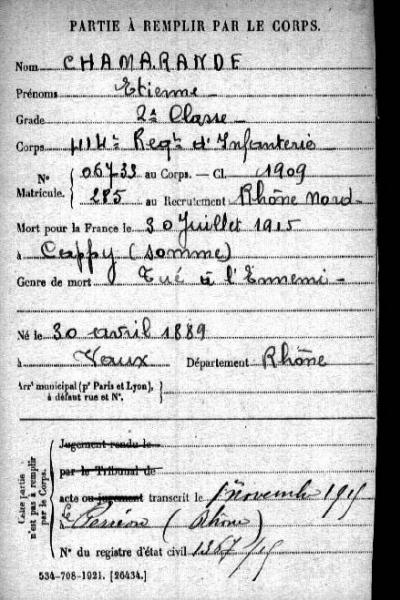 PARTIE À REMPLIR PAR LE CORPS.
Nom CHAMARANDE
Prénoms Etienne
Grade 2e Classe
Corps Regt d'Infanterie
Nº 06733 au Corps. — Cl. 1909
Matricule. 285 au Recrutement Rhône Nord
Mort pour la France le 30 Juillet 1915
à Cappy (Somme)
Genre de mort Tué à l'Ennemi
Né le 30 avril 1889
à Vaux Département Rhône
Arrt municipal (pr Paris et Lyon),
à défaut rue et Nº.
Cette partie
n'est pas à remplir
par le Corps.
Jugement rendu le
par le Tribunal de
acte ou jugement transcrit le 1er novembre 1915
à Perréon (Rhône)
Nº du registre d'état civil 1367/15
534-708-1921. [26434.]